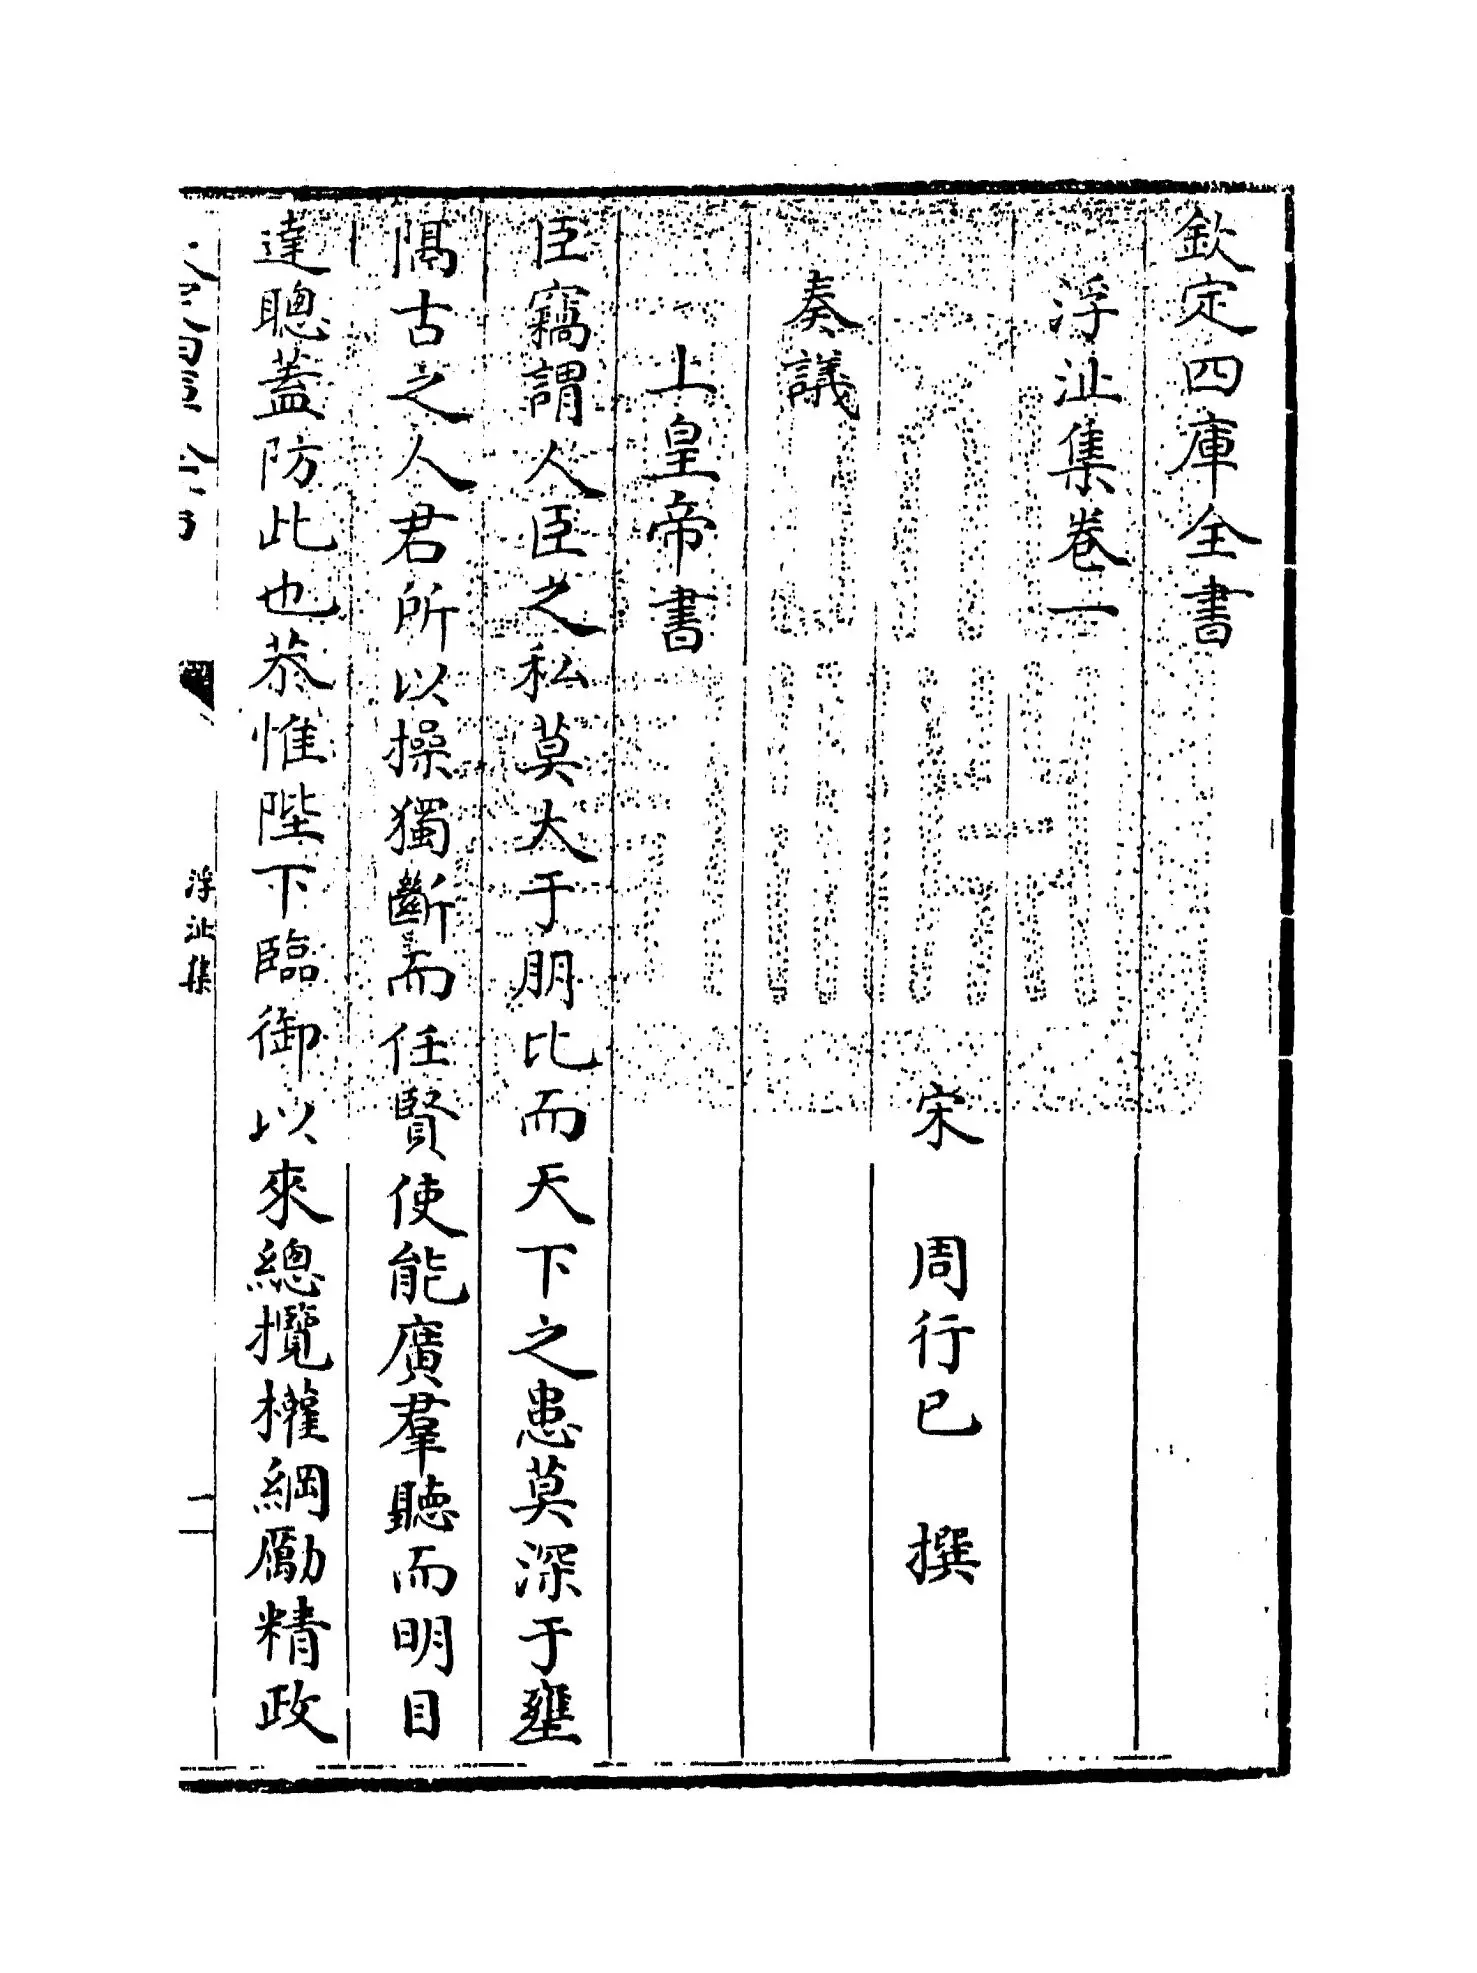 欽定四庫全書
浮沚集卷一
宋 周行已 撰
奏議
上皇帝書
臣竊謂人臣之私莫大于朋比而天下之患莫深于壅
隔古之人君所以操獨斷而任賢使能廣羣聽而明目
達聰蓋防此也恭惟陛下臨御以來總攬權綱勵精政
浮沚集
一